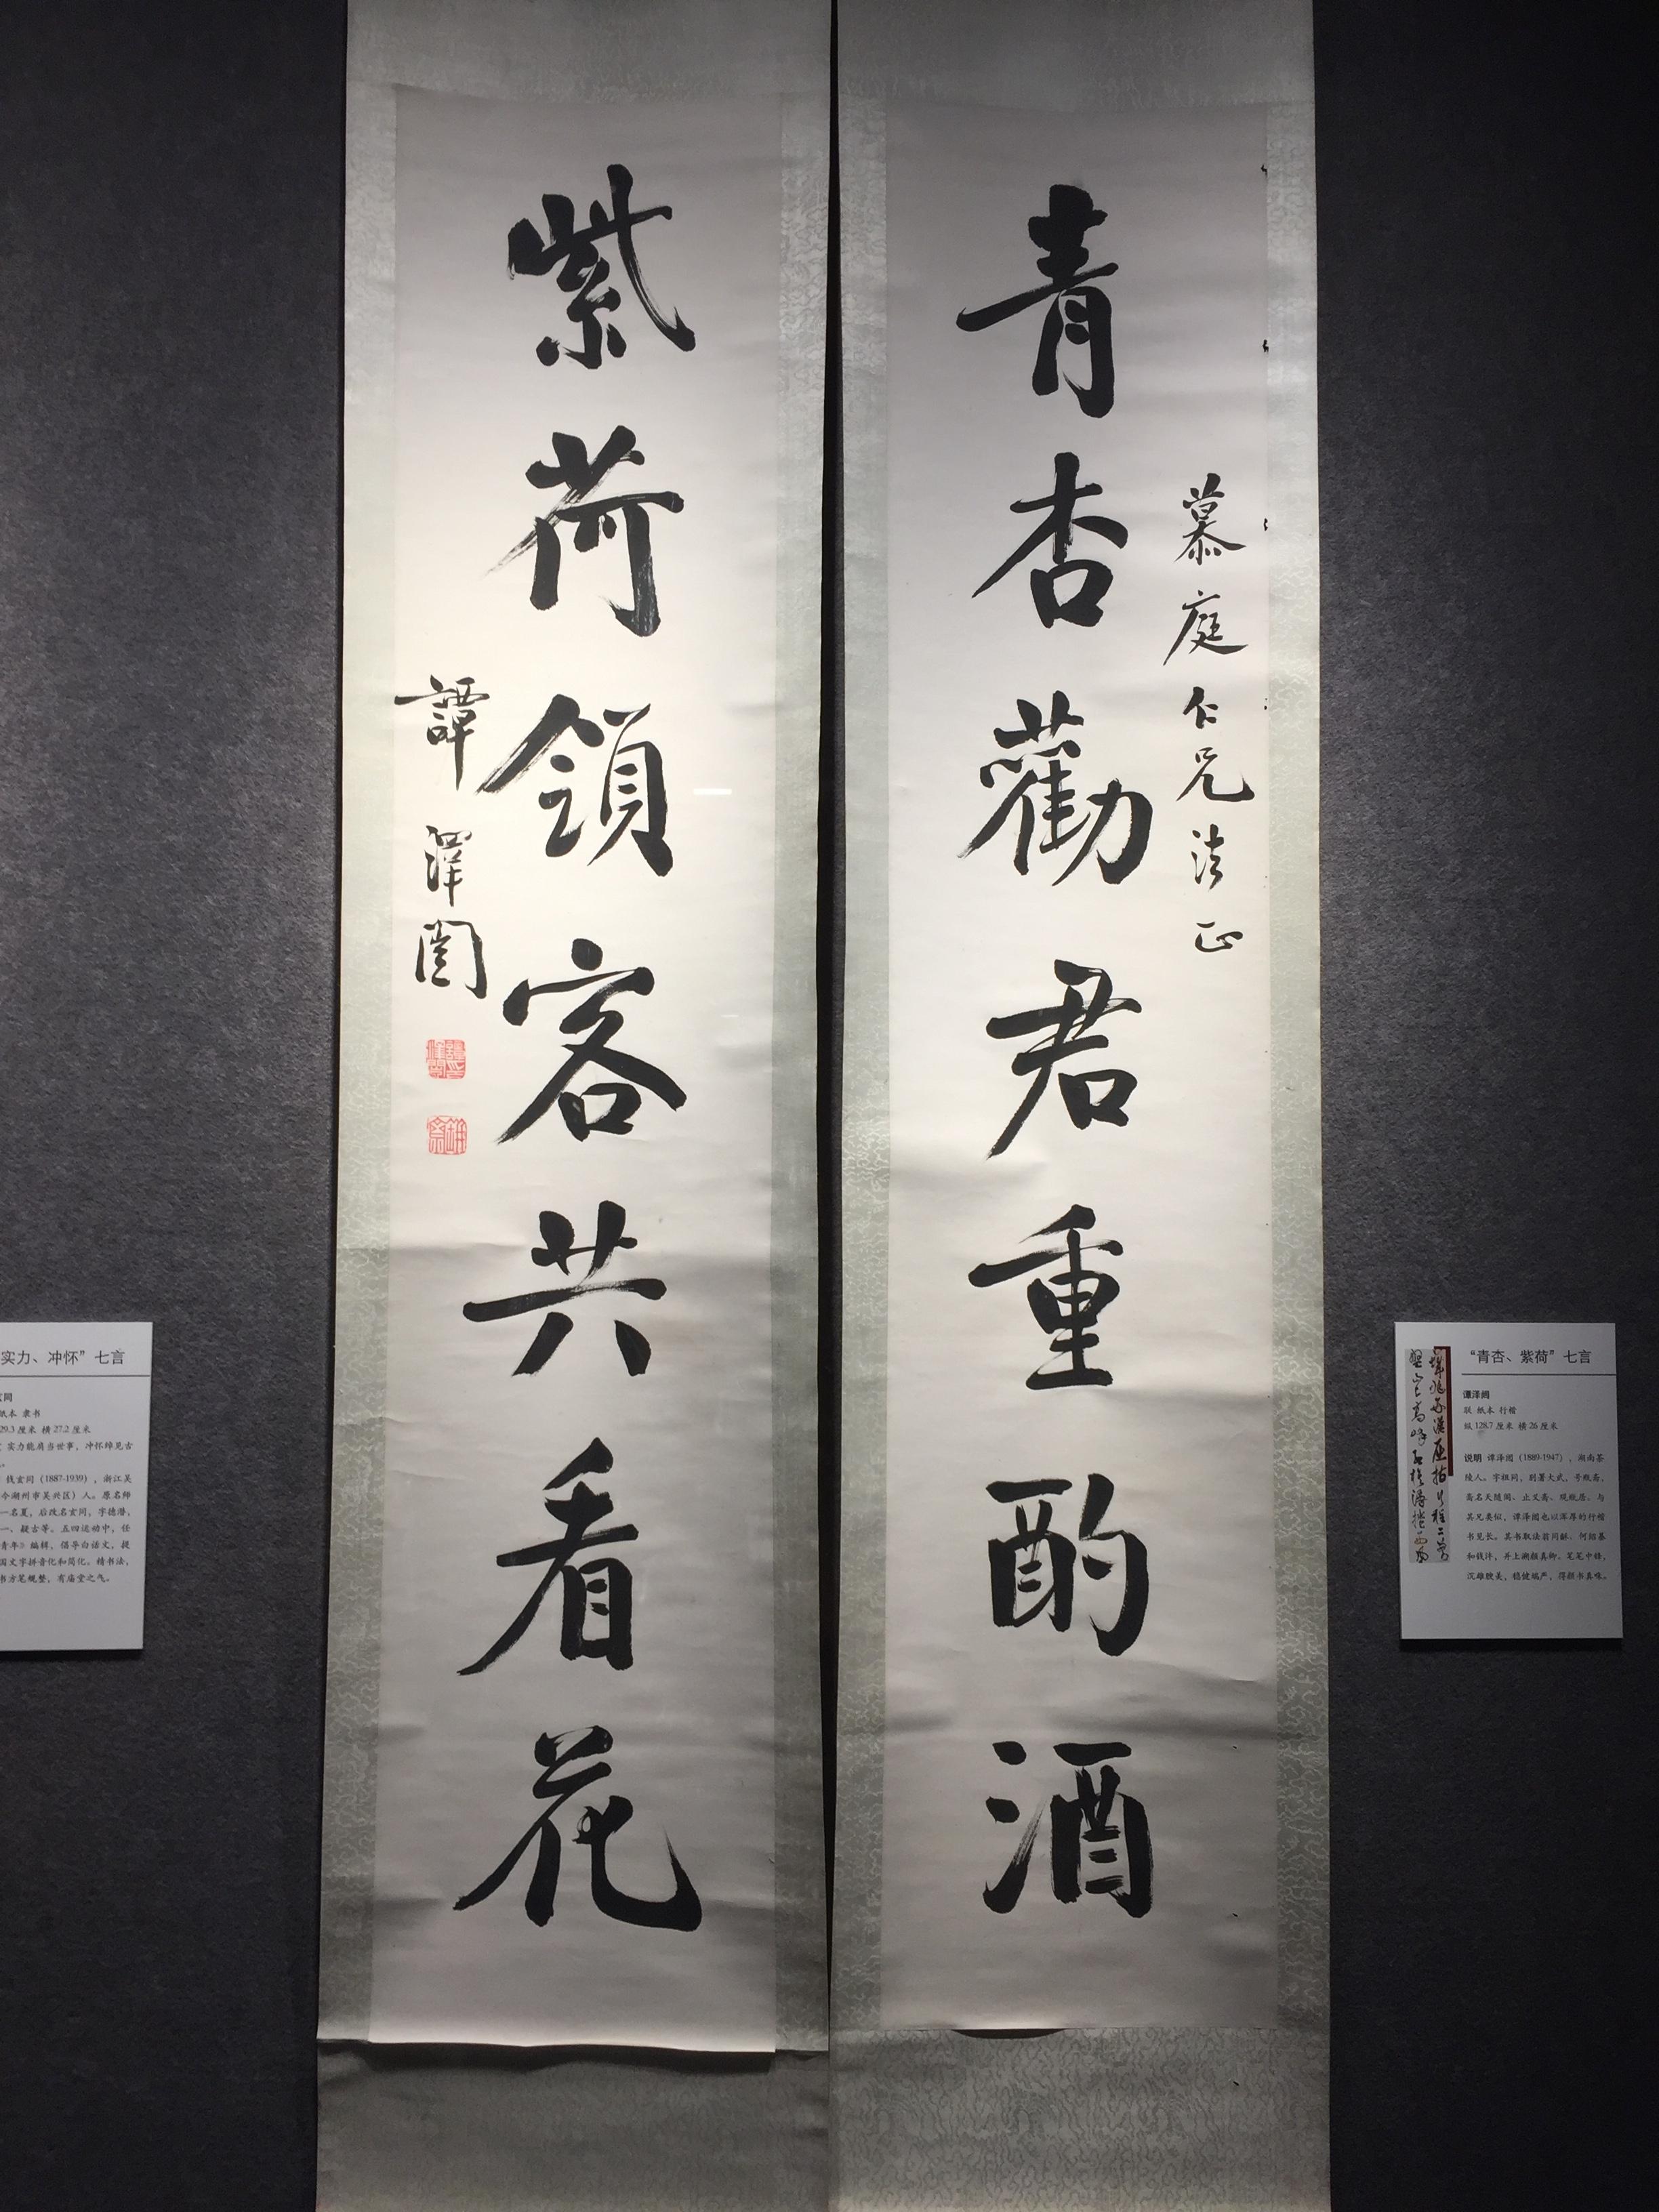 青杏勸君重酌酒
慕庭仁兄法正
紫荷領客共看花
譚澤闓
“青杏、紫荷”七言
谭泽闿
联 纸本 行楷
纵 128.7 厘米 横 26 厘米
说明 谭泽闿（1889-1947），湖南茶
陵人。字祖同，别署大武，号瓶斋，
斋名天随阁、止义斋、观瓶居。与
其兄类似，谭泽闿也以浑厚的行楷
书见长。其书取法翁同龢、何绍基
和钱沣，并上溯颜真卿。笔笔中锋，
沉雄腴美，稳健端严，得颜书真味。
实力、冲怀”七言
玄同
纸本 隶书
29.3 厘米 横 27.2 厘米
实力能肩当世事，冲怀绰见古
钱玄同（1887-1939），浙江吴
今湖州市吴兴区）人。原名师
一名夏，后改名玄同，字德潜，
一、疑古等。五四运动中，任
青年》编辑，倡导白话文，提
国文字拼音化和简化。精书法，
书方笔规整，有庙堂之气。